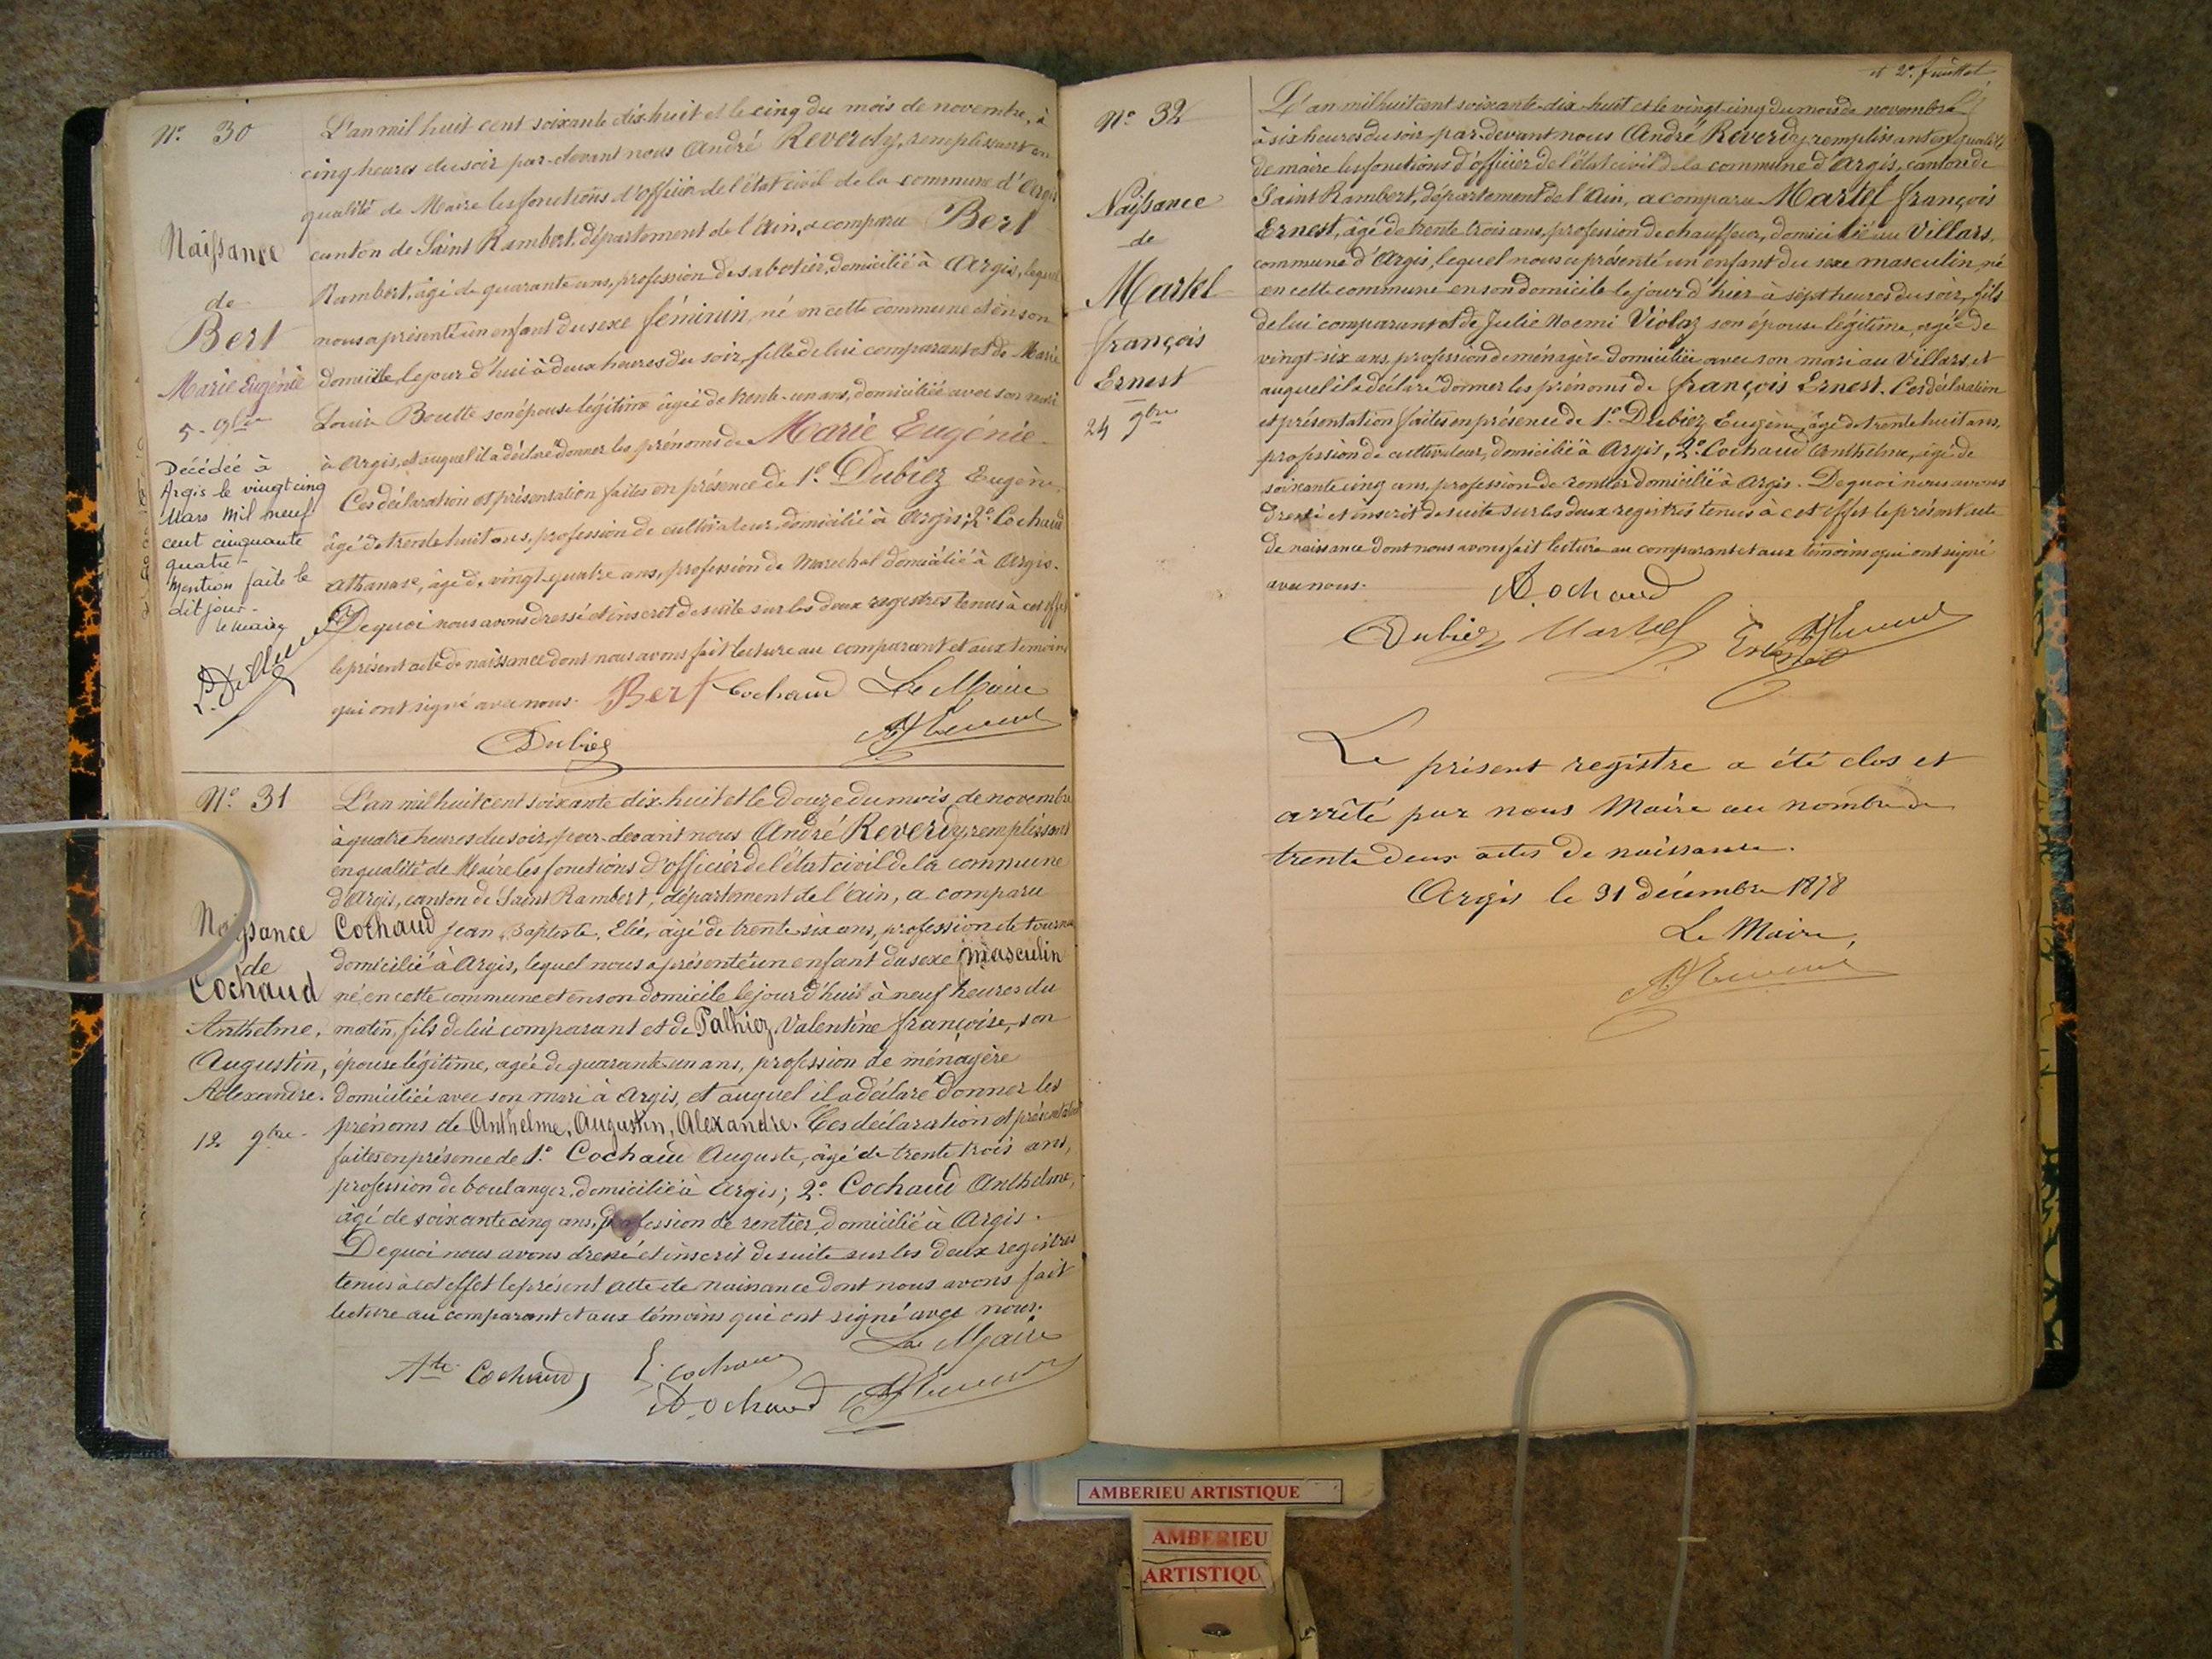 N° 30
Naissance
de
Bert
Marie Eugénie
5 - 9bre
Décédée à
Argis le vingt cinq
Mars mil neuf
cent cinquante
quatre -
Mention faite le
dit jour -
le maire
L'an mil huit cent soixante dix-huit et le cinq du mois de novembre, à
cinq heures du soir par-devant nous André Reverdy, remplissant en
qualité de Maire les fonctions d'officier de l'état civil de la commune d'Argis
canton de Saint Rambert, département de l'Ain, a comparu Bert
Rambert, âgé de quarante ans, profession de sabotier, domicilié à Argis, lequel
nous a présenté un enfant du sexe féminin, né en cette commune et en son
domicile, le jour d'hui à deux heures du soir, fille de lui comparant et de Marie
Louise Boutte son épouse légitime âgée de trente-un ans, domiciliée avec son mari
à Argis, et auquel il a déclaré donner les prénoms de Marie Eugénie
Ces déclaration et présentation faites en présence de 1° Dubiez Eugène,
âgé de trente huit ans, profession de cultivateur, domicilié à Argis; 2° Cochaud
Athanase, âgé de vingt-quatre ans, profession de Marechal domicilié à Argis.
De quoi nous avons dressé et inscrit de suite sur les deux registres tenus à cet effet
le présent acte de naissance dont nous avons fait lecture au comparant et aux témoins
qui ont signé avec nous. Bert Cochaud Le Maire
Dubiez
N° 31
Naissance
de
Cochaud
Anthelme,
Augustin,
Alexandre.
12 9bre
L'an mil huit cent soixante dix-huit et le douze du mois de novembre
à quatre heures du soir, par-devant nous André Reverdy, remplissant
en qualité de Maire les fonctions d'officier de l'état civil de la commune
d'Argis, canton de Saint Rambert, département de l'Ain, a comparu
Cochaud Jean Baptiste, Elie, âgé de trente-six ans, profession de tourneur
domicilié à Argis, lequel nous a présenté un enfant du sexe masculin
né en cette commune et en son domicile le jour d'hui à neuf heures du
matin, fils de lui comparant et de Palhiez Valentine françoise, son
épouse légitime, agée de quarante-un ans, profession de ménagère
domiciliée avec son mari à Argis, et auquel il a déclaré donner les
prénoms de Anthelme, Augustin, Alexandre. Ces déclaration et présentation
faites en présence de 1° Cochaud Auguste, âgé de trente trois ans,
profession de boulanger, domicilié à Argis; 2° Cochaud Anthelme,
âgé de soixante cinq ans, profession de rentier, domicilié à Argis.
De quoi nous avons dressé et inscrit de suite sur les deux registres
tenus à cet effet le présent acte de naissance dont nous avons fait
lecture au comparant et aux témoins qui ont signé avec nous.
Le Maire
Ate Cochaud E. Cochaud
A. Cochaud
et 2e feuillet
N° 32
Naissance
de
Martel
françois
Ernest
24 9bre
L'an mil huit cent soixante-dix-huit et le vingt-cinq du mois de novembre
à six heures du soir par-devant nous André Reverdy, remplissant en qualité
de maire les fonctions d'officier de l'état civil de la commune d'Argis, canton de
Saint Rambert, département de l'Ain, a comparu Martel françois
Ernest, âgé de trente trois ans, profession de chauffeur, domicilié au Villars,
commune d'Argis, lequel nous a présenté un enfant du sexe masculin, né
en cette commune en son domicile le jour d'hier à sept heures du soir, fils
de lui comparant et de Julie Noemi Violaz son épouse légitime, agée de
vingt-six ans, profession de ménagère domiciliée avec son mari au Villars, et
auquel il a déclaré donner les prénoms de françois Ernest. Ces déclaration
et présentation faites en présence de 1° Dubiez Eugène, âgé de trente huit ans,
profession de cultivateur, domicilié à Argis, 2° Cochaud Anthelme, âgé de
soixante cinq ans, profession de rentier domicilié à Argis. De quoi nous avons
dressé et inscrit de suite sur les deux registres tenus à cet effet le présent acte
de naissance dont nous avons fait lecture au comparant et aux témoins qui ont signé
avec nous.
A. Cochaud
Dubiez Martel Ernest
Le présent registre a été clos et
arrêté par nous Maire au nombre de
trente deux actes de naissance.
Argis le 31 décembre 1878
Le Maire,
AMBERIEU ARTISTIQUE
AMBERIEU
ARTISTIQU